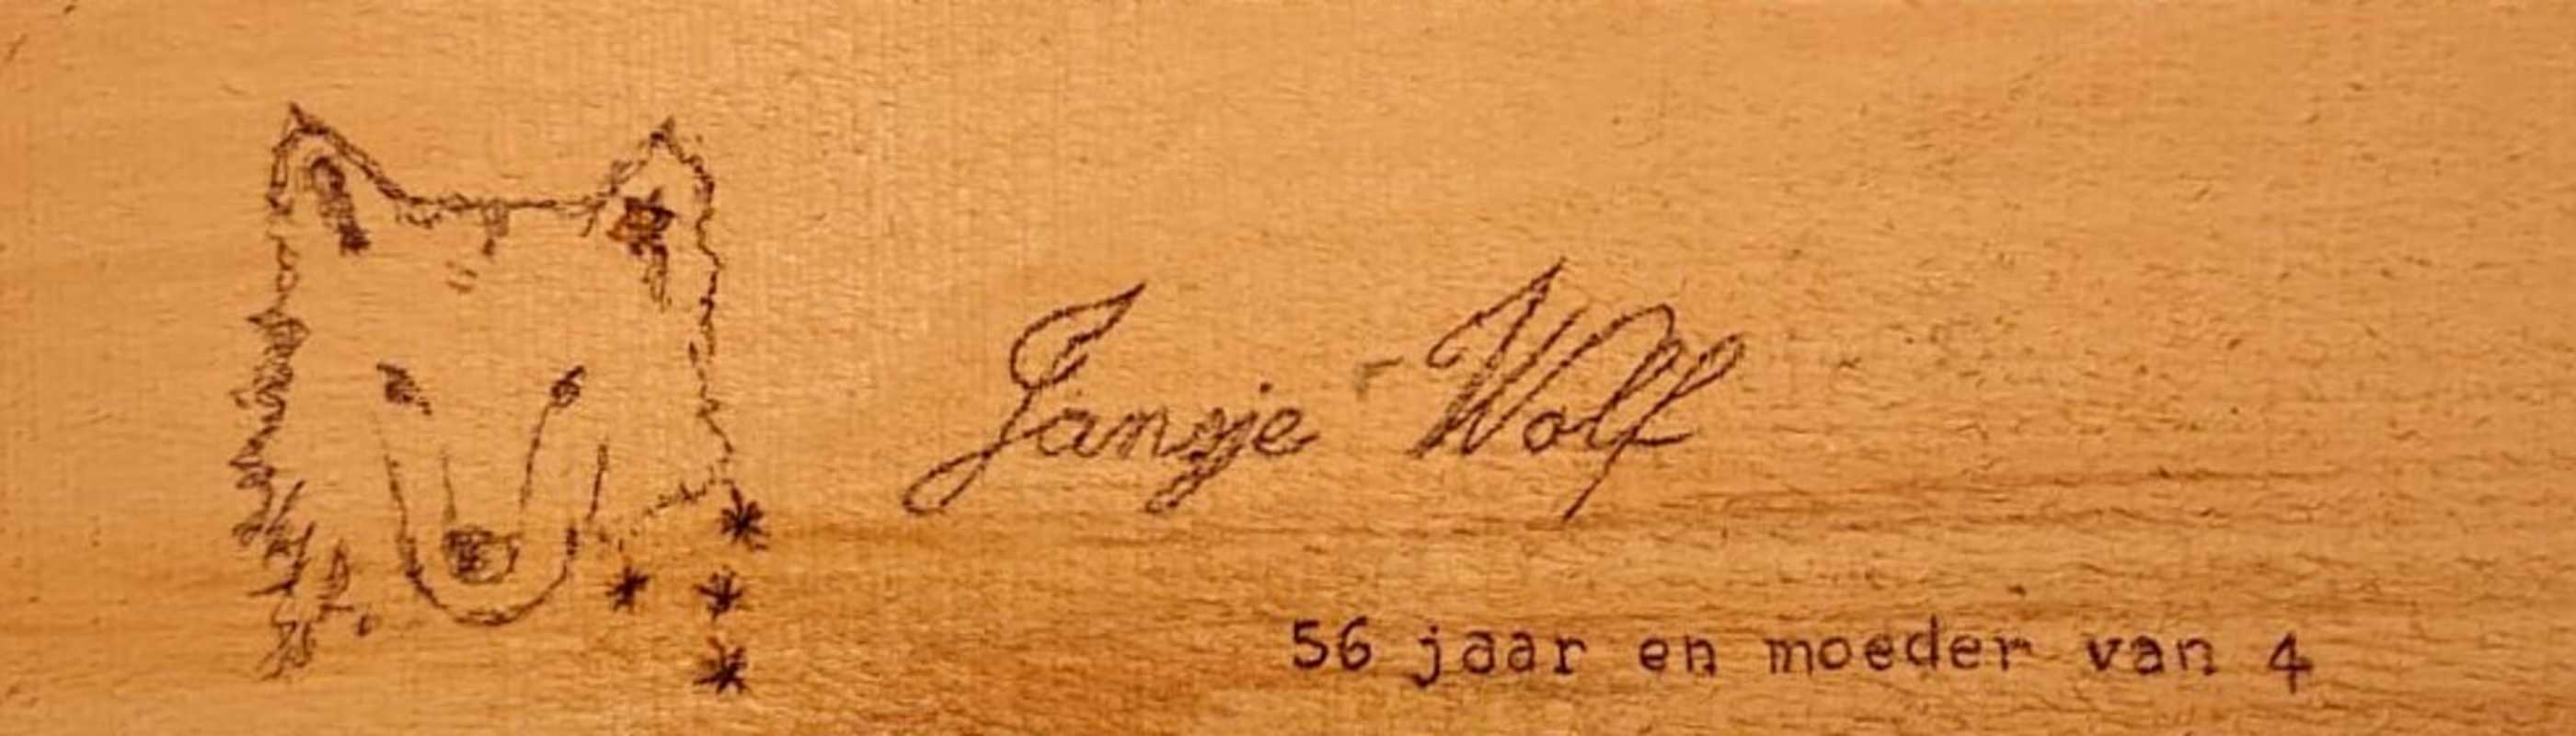 Jansje Wolf
56 jaar en moeder van 4